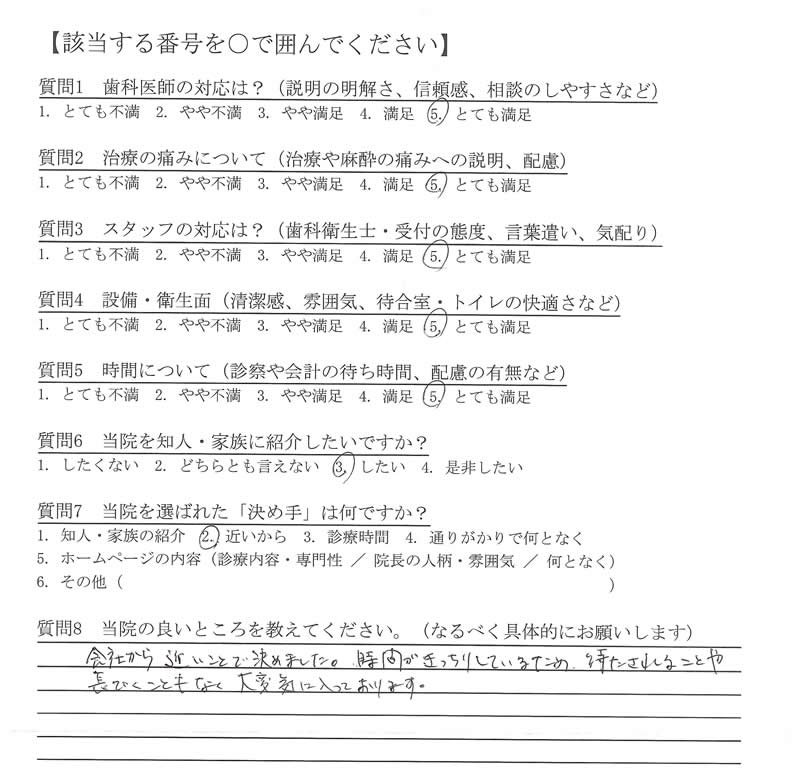 【該当する番号を○で囲んでください】
質問1　歯科医師の対応は？（説明の明解さ、信頼感、相談のしやすさなど）
1. とても不満　2. やや不満　3. やや満足　4. 満足　5. とても満足
質問2　治療の痛みについて（治療や麻酔の痛みへの説明、配慮）
1. とても不満　2. やや不満　3. やや満足　4. 満足　5. とても満足
質問3　スタッフの対応は？（歯科衛生士・受付の態度、言葉遣い、気配り）
1. とても不満　2. やや不満　3. やや満足　4. 満足　5. とても満足
質問4　設備・衛生面（清潔感、雰囲気、待合室・トイレの快適さなど）
1. とても不満　2. やや不満　3. やや満足　4. 満足　5. とても満足
質問5　時間について（診察や会計の待ち時間、配慮の有無など）
1. とても不満　2. やや不満　3. やや満足　4. 満足　5. とても満足
質問6　当院を知人・家族に紹介したいですか？
1. したくない　2. どちらとも言えない　3. したい　4. 是非したい
質問7　当院を選ばれた「決め手」は何ですか？
1. 知人・家族の紹介　2. 近いから　3. 診療時間　4. 通りがかりで何となく
5. ホームページの内容（診療内容・専門性 ／ 院長の人柄・雰囲気 ／ 何となく）
6. その他（　　　　　　　　　　　　　　　　）
質問8　当院の良いところを教えてください。（なるべく具体的にお願いします）
会社から近いことで決めました。時間がきっちりしているため、待たされることや
長びくこともなく大変気に入っております。